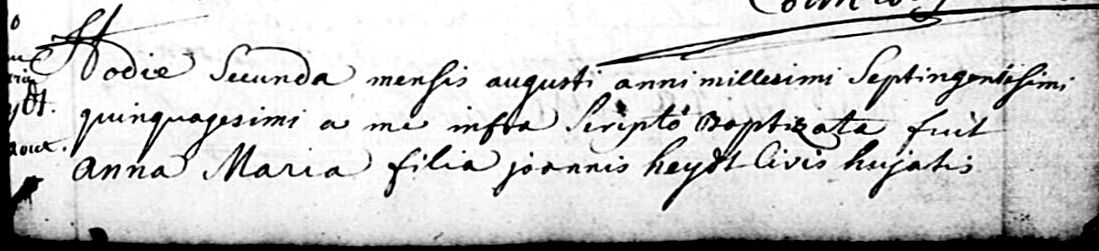 Hodie Secunda mensis augusti anni millesimi Septingentesimi
ydt. quinquagesimi a me infra Scripto Baptizata fuit
anna Maria filia joannis heydt Civis hujatis